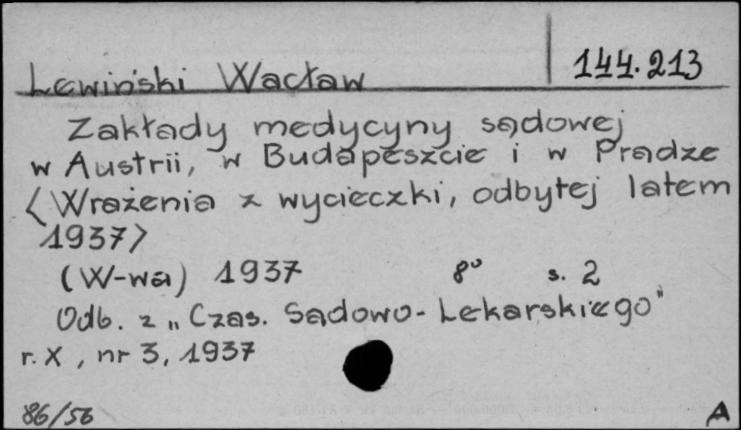 144.213
Lewiński Wacław
Zakłady medycyny sądowej
w Austrii, w Budapeszcie i w Pradze
<Wrażenia z wycieczki, odbytej latem
1937>
(W-wa) 1937 8° s. 2
Odb. z „Czas. Sądowo-Lekarskiego"
r. X, nr 3, 1937
86/56 A